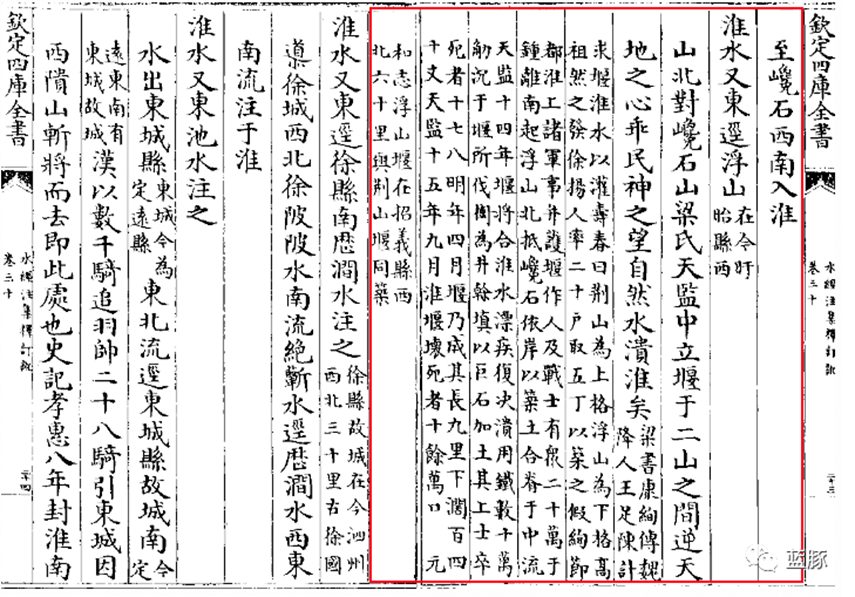 欽定四庫全書
水經注集釋訂訛
卷三十
二十三
至巉石西南入淮
淮水又東逕浮山在今盱
眙縣西
山北對巉石山梁氏天監中立堰于二山之間逆天
地之心乖民神之望自然水潰淮矣梁書康絢傳魏
降人王足陳計
求堰淮水以灌壽春曰荆山為上格浮山為下格高
祖然之發徐揚人率二十户取五丁以築之假絢節
都淮上諸軍事并護堰作人及戰士有衆二十萬于
鍾離南起浮山北抵巉石依岸以築土合脊于中流
天監十四年堰將合淮水漂疾復决潰用鐵數十萬
觔沉于堰所伐樹為井榦填以巨石加土其上士卒
死者十七八明年四月堰乃成其長九里下濶百四
十丈天監十五年九月淮堰壞死者十餘萬口 元
和志浮山堰在招義縣西
北六十里與荆山堰同築
淮水又東逕徐縣南歷澗水注之徐縣故城在今泗州
西北三十里古徐國
導徐城西北徐陂陂水南流絶蘄水逕歷澗水西東
南流注于淮
淮水又東池水注之
水出東城縣東城今為
定遠縣東北流逕東城縣故城南今
定
遠東南有
東城故城漢以數千騎追羽帥二十八騎引東城因
西隤山斬將而去即此處也史記孝惠八年封淮南
欽定四庫全書
水經注集釋訂訛
卷三十
二十四
蓝豚